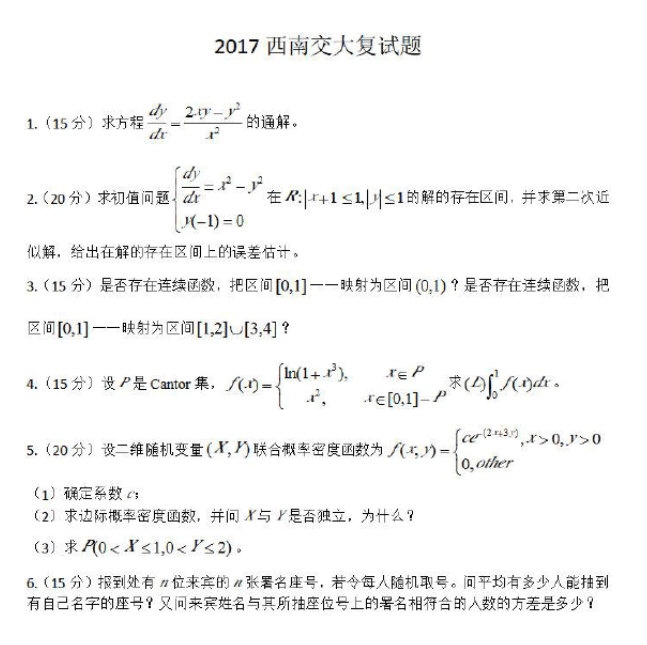 2017 西南交大复试题
1.（15 分）求方程 dy/dx = (2xy − y²)/x² 的通解。
2.（20 分）求初值问题 { dy/dx = x² − y², y(−1) = 0 在 R: |x+1| ≤ 1, |y| ≤ 1 的解的存在区间，并求第二次近
似解，给出在解的存在区间上的误差估计。
3.（15 分）是否存在连续函数，把区间 [0,1] 一一映射为区间 (0,1)？是否存在连续函数，把
区间 [0,1] 一一映射为区间 [1,2]∪[3,4]？
4.（15 分）设 P 是 Cantor 集，f(x) = { ln(1+x³), x∈P; x², x∈[0,1]−P 求 (L)∫₀¹ f(x)dx 。
5.（20 分）设二维随机变量 (X,Y) 联合概率密度函数为 f(x,y) = { ce^{-(2x+3y)}, x>0, y>0; 0, other
（1）确定系数 c；
（2）求边际概率密度函数，并问 X 与 Y 是否独立，为什么？
（3）求 P(0 < X ≤ 1, 0 < Y ≤ 2) 。
6.（15 分）报到处有 n 位来宾的 n 张署名座号，若令每人随机取号。问平均有多少人能抽到
有自己名字的座号？又问来宾姓名与其所抽座位号上的署名相符合的人数的方差是多少？